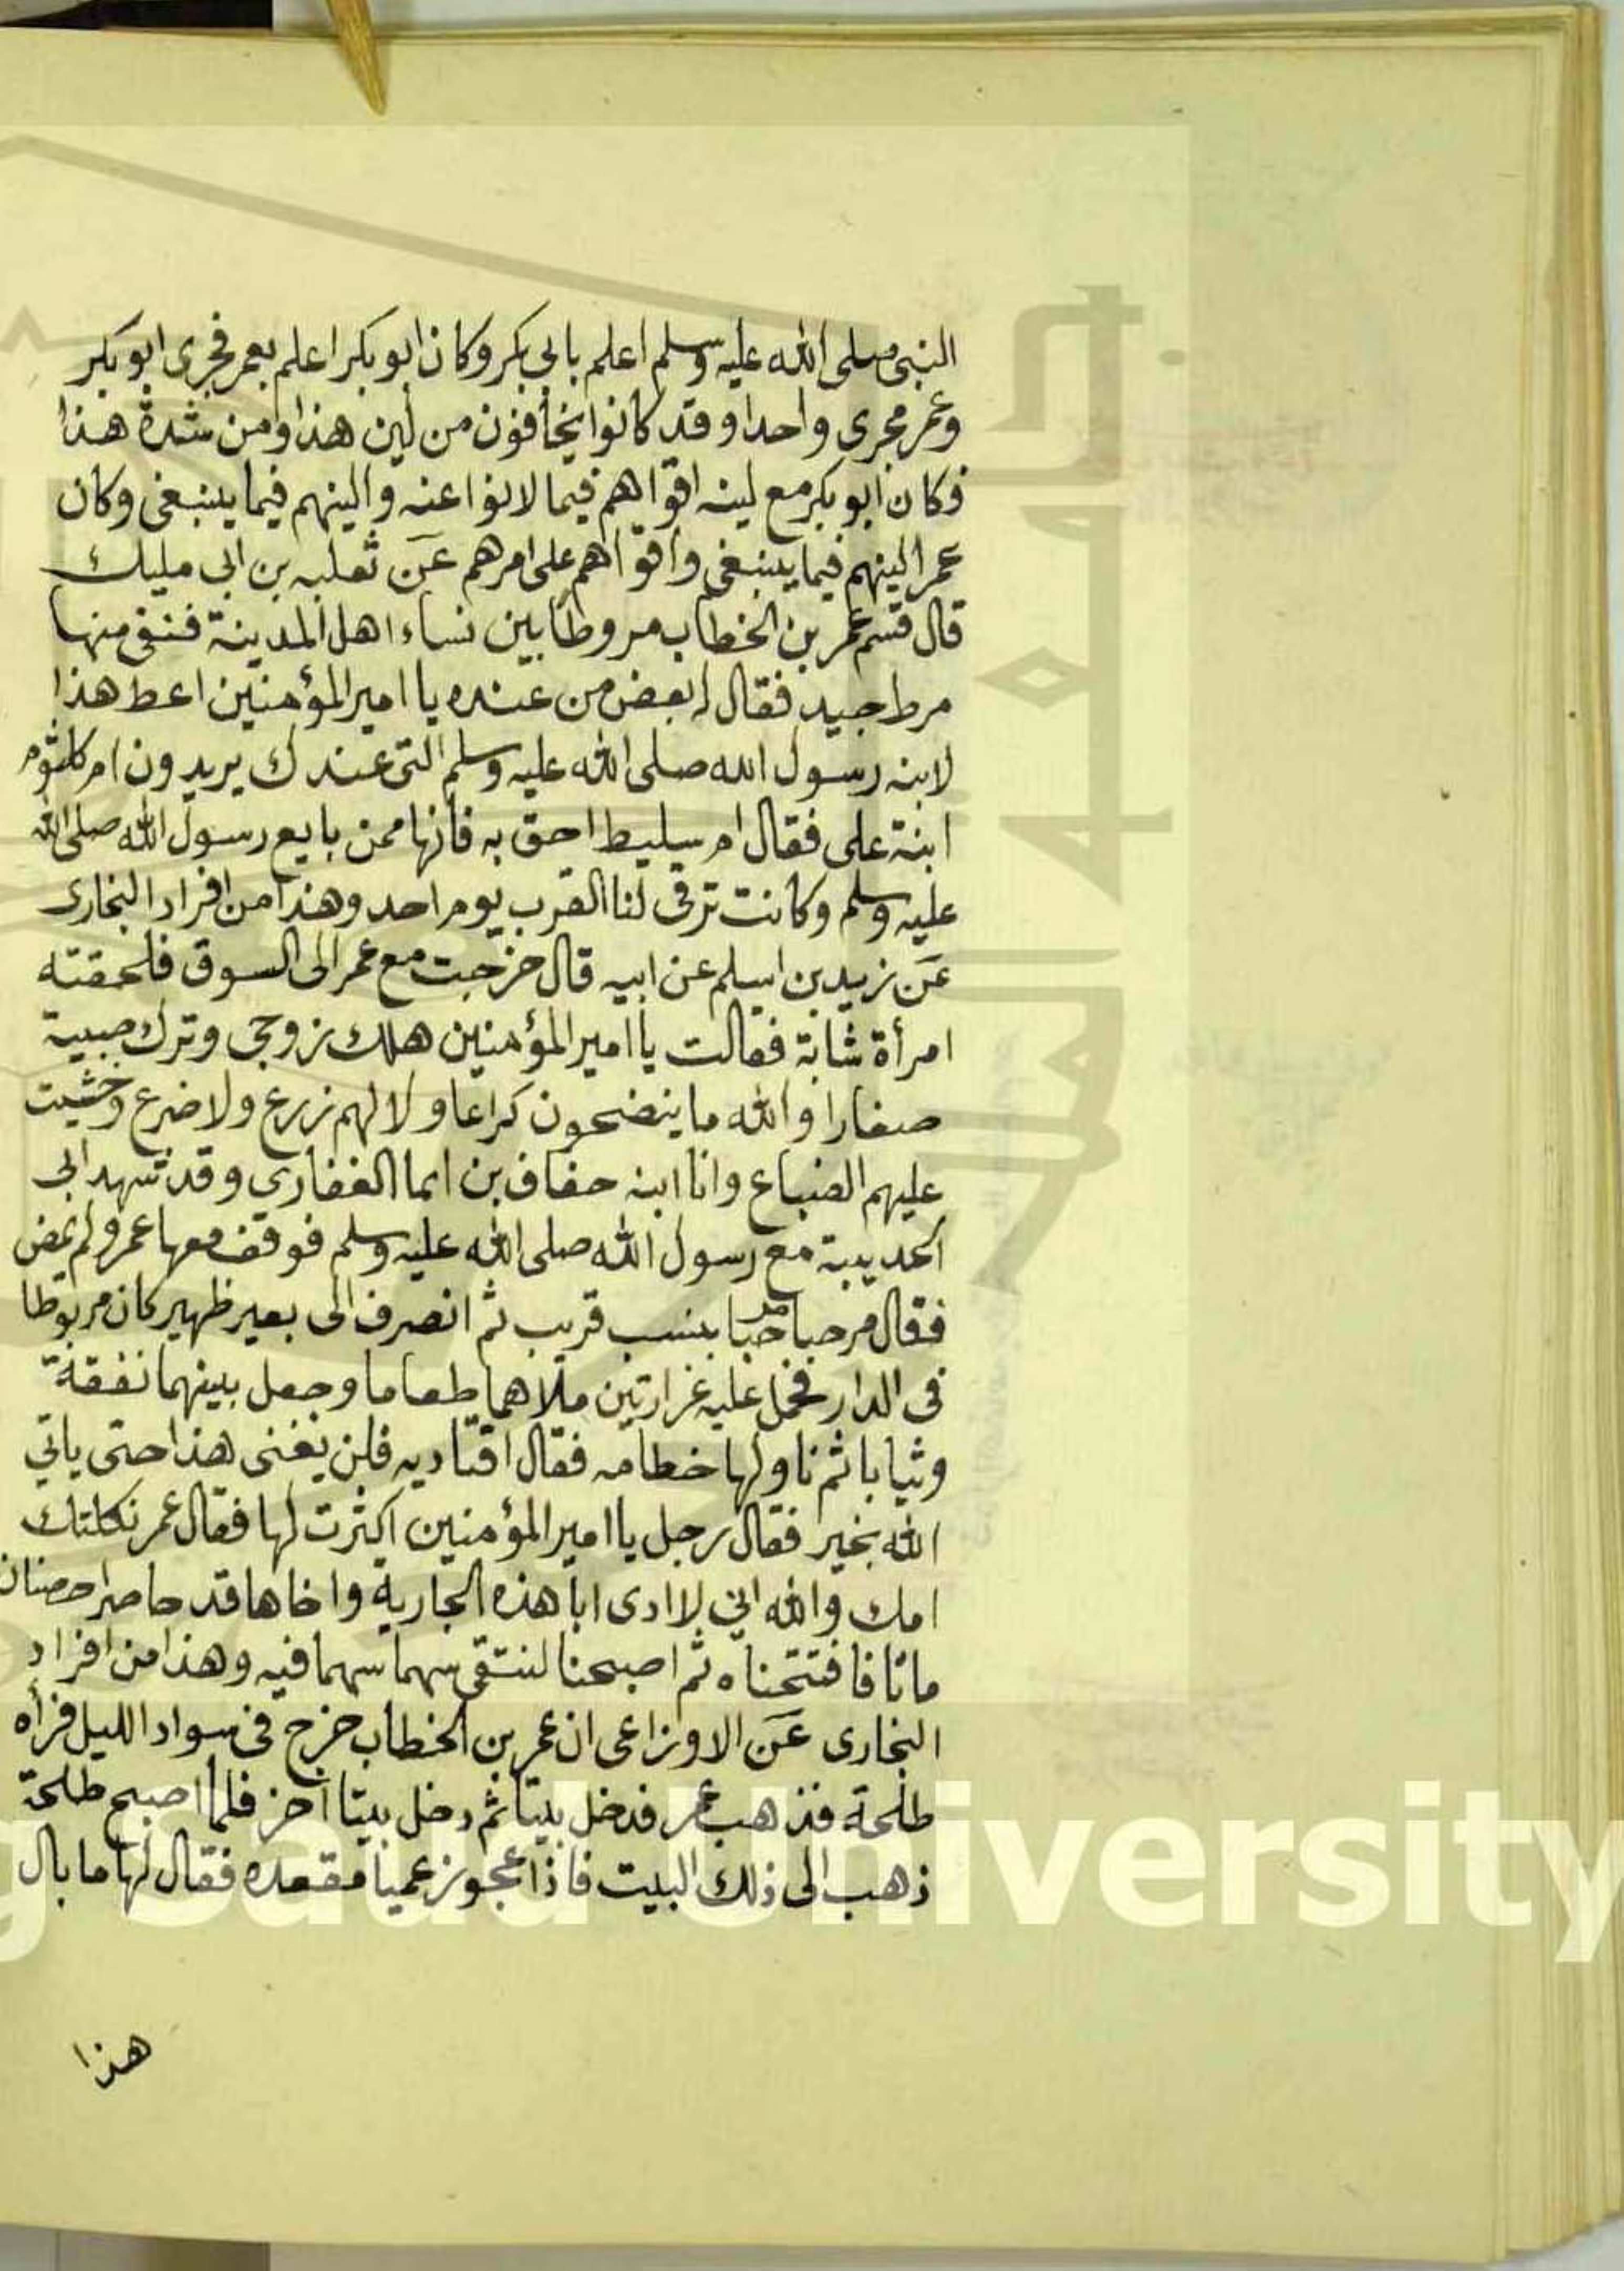 النبى صلى الله عليه وسلم اعلم بابى بكر وكان ابو بكر اعلم بعمر فجرى ابو بكر
وعمر مجرى واحدا وقد كانوا يخافون من لين هذا ومن شدة هذا
فكان ابو بكر مع لينه اقواهم فيما لانوا عنه والينهم فيما ينبغى وكان
عمر الينهم فيما ينبغى واقواهم على امرهم عن ثعلبه بن ابى مليك
قال قسم عمر بن الخطاب مروطا بين نساء اهل المدينة فنقى منها
مرط جيد فقال له بعض من عنده يا امير المؤمنين اعط هذا
لابنه رسول الله صلى الله عليه وسلم التى عندك يريدون ام كلثوم
ابنة على فقال ام سليط احق به فانها ممن بايع رسول الله صلى الله
عليه وسلم وكانت ترقى لنا القرب يوم احد وهذا من افراد البخارى
عن زيد بن اسلم عن ابيه قال خرجت مع عمر الى السوق فلحقته
امرأة شابة فقالت يا امير المؤمنين هلك زوجى وترك صبية
صغارا والله ما ينضحون كراعا ولا لهم زرع ولا ضرع وخشيت
عليهم الضباع وانا ابنه خفاف بن ايما الغفاري وقد شهد ابى
الحديبية مع رسول الله صلى الله عليه وسلم فوقف معها عمر ولم يمض
فقال مرحبا مرحبا بنسب قريب ثم انصرف الى بعير ظهير كان مربوطا
فى الدار فحمل عليه غرارتين ملاهما طعاما وجعل بينهما نفقة
وثيابا ثم ناولها خطامه فقال اقتاديه فلن يفنى هذا حتى ياتي
الله بخير فقال رجل يا امير المؤمنين اكثرت لها فقال عمر ثكلتك
امك والله اني لاارى ابا هذه الجارية واخاها قد حاصرا حصنا
مانا فافتتحناه ثم اصبحنا لنتقى سهما سهما فيه وهذا من افراد
البخارى عن الاوزاعى ان عمر بن الخطاب خرج فى سواد الليل فراه
طلحة فذهب عمر فدخل بيتا ثم دخل بيتا آخر فلما اصبح طلحة
ذهب الى ذلك البيت فاذا عجوز عميا مقعده فقال لها ما بال
هذا
Saud University